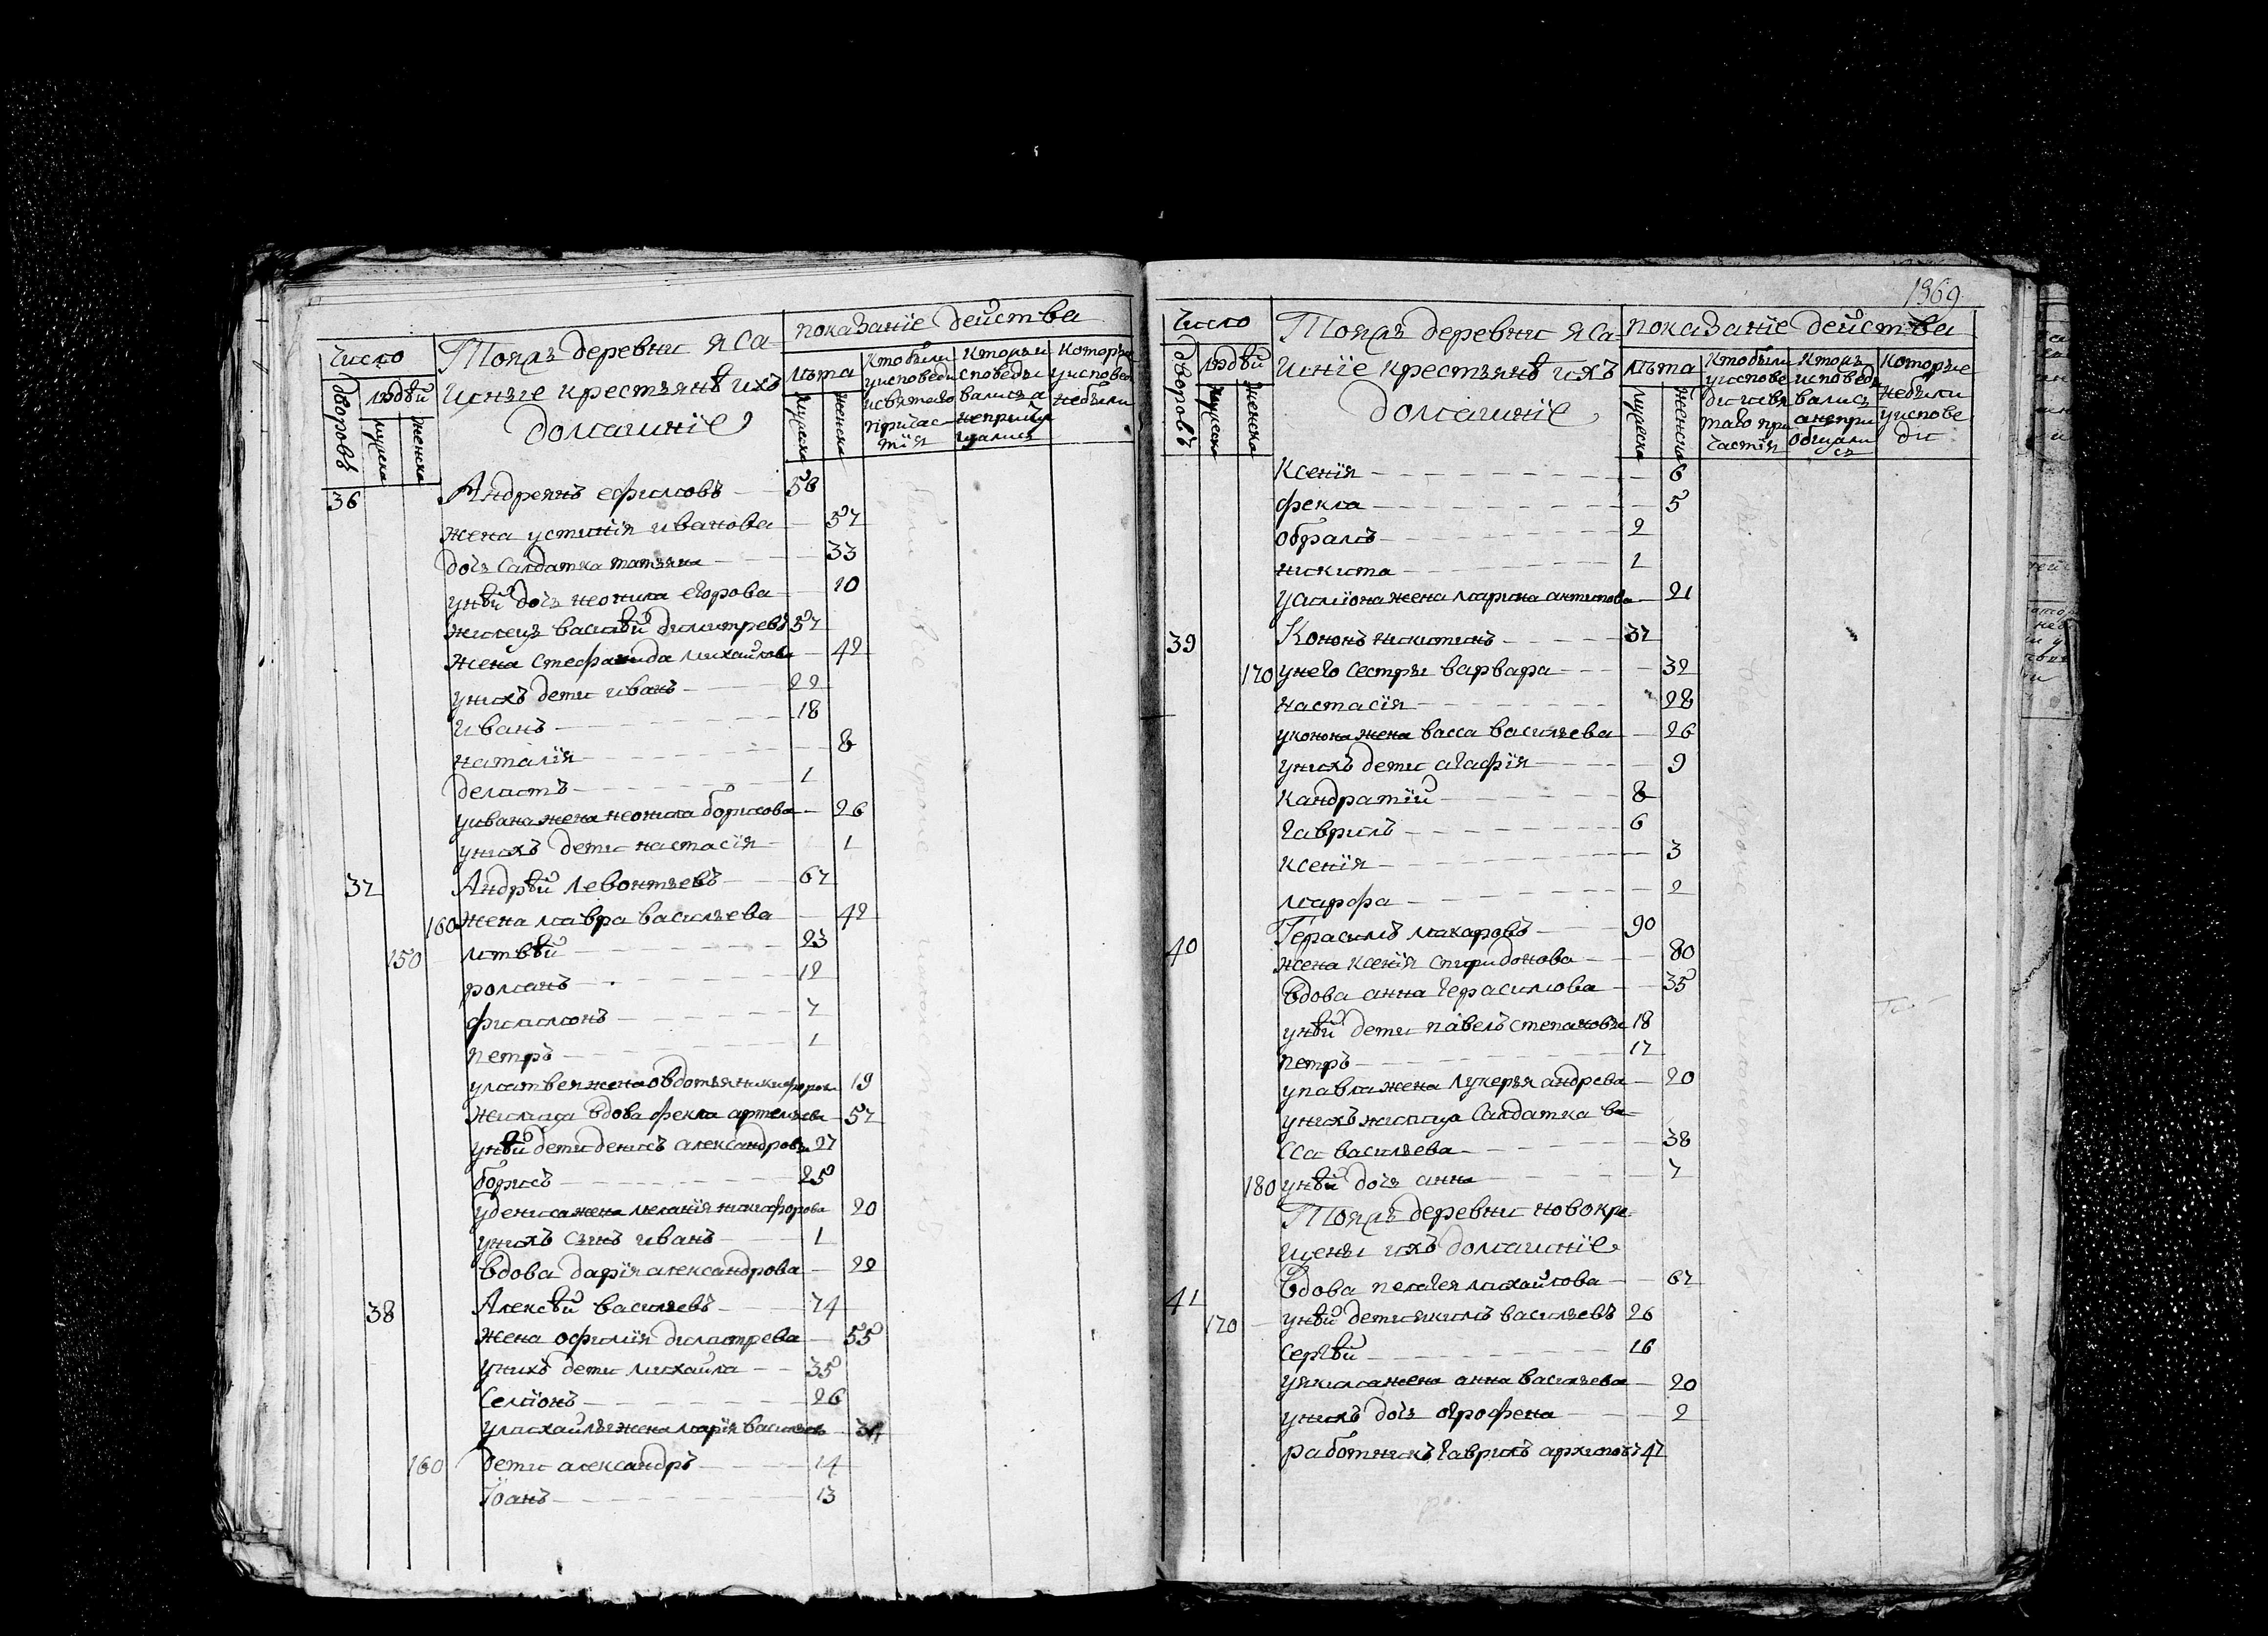 число
дворовъ
людѣй
мужеска
женска
Тояжъ деревни яса
шные крестьянѣ ихъ
домашніе
показаніе действа
лѣта
мужеска
женска
Кто были
уисповеди
исвятаго
причас
тія
Кторыи
споведы
вались а
неприоб
щались
Которые
уисповеди
небыли
36 Андреянъ ефимовъ 58
жена устинія иванова 57
дочь салдатка татьяна 33
унѣй дочь неонила егорова 10
жилецъ василѣй дмитревъ 57
жена стефанида михайлова 42
унихъ дети иванъ 22
иванъ 18
наталія 8
1
уивана жена неонила борисова 26
унихъ дети настасія 1
37 Андрѣй левонтьевъ 67
160 жена мавра васильева 42
150 матвѣй 23
романъ 12
филимонъ 7
петръ 1
уматвея жена овдотья никифорова 19
жилица вдова фекла артемьева 57
унѣй дети денисъ александровъ 27
борисъ 25
удениса жена меланія никифорова 20
унихъ сынъ иванъ 1
вдова дарія александрова 22
38 Алексѣй васильевъ 74
жена офимія дмитрева 55
унихъ дети михайла 35
семіонъ 26
умихайлы жена марія васильева
160 дети александръ 14
Іоанъ 13
1369
число
дворовъ
людѣй
мужеска
женска
Тояжъ деревни яса
шніе крестьянѣ ихъ
домашніе
показаніе действа
лѣта
мужеска
женска
Кто были
уисповеди
исвя
таго при
частія
Кторы
исповеды
вались
анепри
общали
сь
Которые
небыли
уиспове
ди
Ксенія 6
фекла 5
обрамъ 2
никита 1
усиміона жена марина антипова 21
39 Кононъ никитинъ 37
170 унего сестры варвара 32
настасія 28
уконона жена васса васильева 26
унихъ дети агафія 9
кандратій 8
гаврилъ 6
ксенія 3
марфа 2
40 Герасимъ макаровъ 90
жена ксенія спиридонова 80
вдова анна герасимова 35
унѣй дети павелъ степановъ 18
петръ 17
упавла жена лукерья андрева 20
унихъ жилица салдатка ва
сса васильева 38
180 унѣй дочь анна 7
Тояжъ деревни новокре
щены ихъ домашніе
41 вдова пелагея михайлова 67
170 унѣй дети якимъ васильевъ 26
сергѣй 16
уякима жена анна васильева 20
унихъ дочь огрофена 2
работникъ гаврилъ архиповъ 47